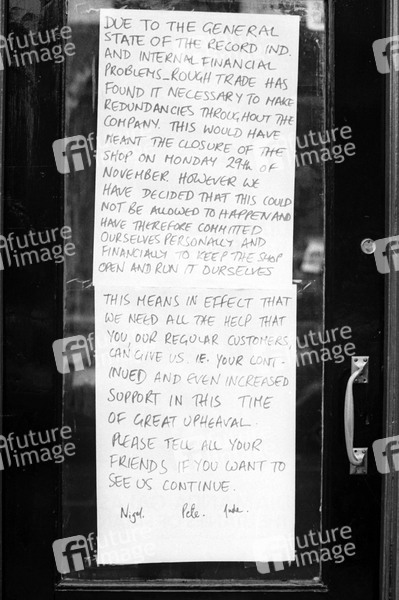 DUE TO THE GENERAL
STATE OF THE RECORD IND.
AND INTERNAL FINANCIAL
PROBLEMS_ROUGH TRADE HAS
FOUND IT NECESSARY TO MAKE
REDUNDANCIES THROUGHOUT THE
COMPANY. THIS WOULD HAVE
MEANT THE CLOSURE OF THE
SHOP ON MONDAY 29th OF
NOVEMBER. HOWEVER WE
HAVE DECIDED THAT THIS COULD
NOT BE ALLOWED TO HAPPEN AND
HAVE THEREFORE COMMITTED
OURSELVES PERSONALLY AND
FINANCIALLY TO KEEP THE SHOP
OPEN AND RUN IT OURSELVES
THIS MEANS IN EFFECT THAT
WE NEED ALL THE HELP THAT
YOU, OUR REGULAR CUSTOMERS,
CAN GIVE US. IE. YOUR CONT-
INUED AND EVEN INCREASED
SUPPORT IN THIS TIME
OF GREAT UPHEAVAL.
PLEASE TELL ALL YOUR
FRIENDS IF YOU WANT TO
SEE US CONTINUE.
Nigel. Pete. Jude.
fi future image